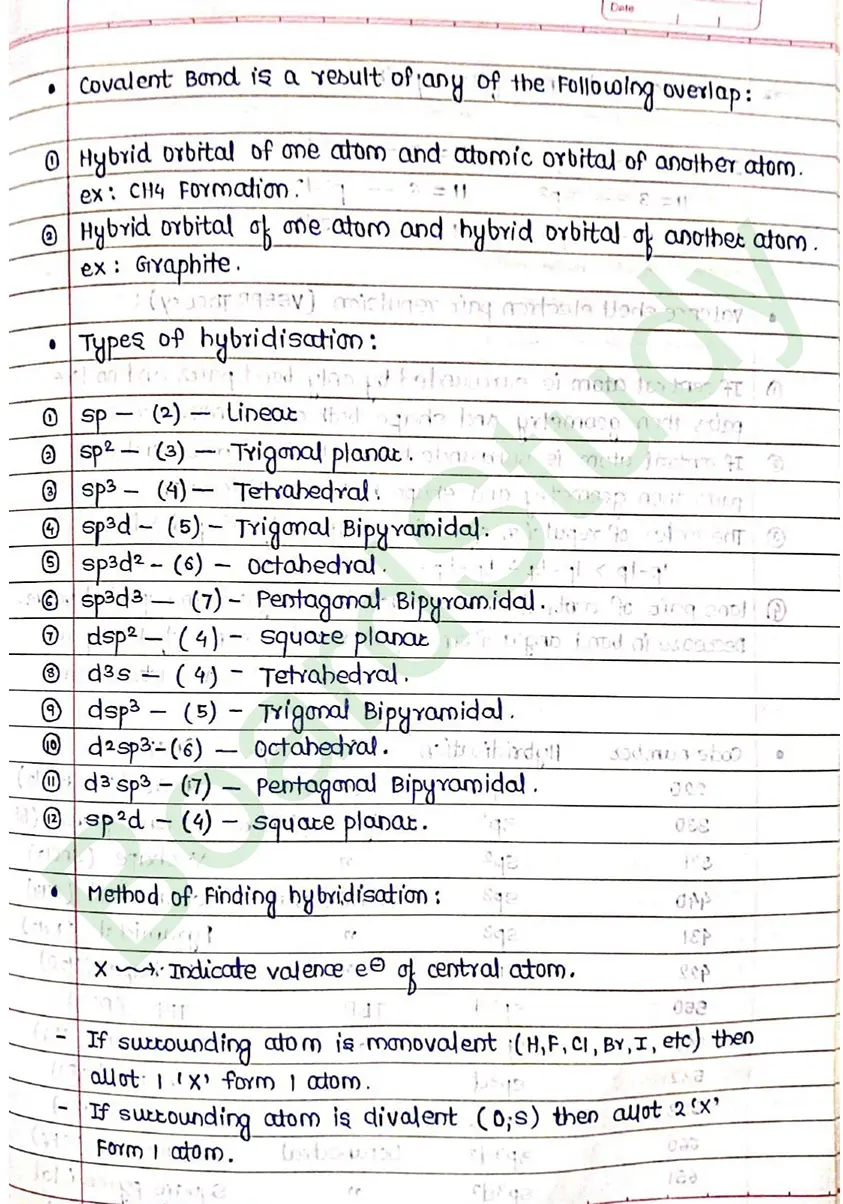 Date
• Covalent Bond is a result of any of the following overlap:
① Hybrid orbital of one atom and atomic orbital of another atom.
ex: CH4 Formation.
② Hybrid orbital of one atom and hybrid orbital of another atom.
ex: Graphite.
• Types of hybridisation:
① sp — (2) — Linear
② sp2 — (3) — Trigonal planar.
③ sp3 — (4) — Tetrahedral.
④ sp3d — (5) — Trigonal Bipyramidal.
⑤ sp3d2 - (6) — octahedral.
⑥ sp3d3 — (7) - Pentagonal Bipyramidal.
⑦ dsp2 — (4) - square planar
⑧ d3s — (4) - Tetrahedral.
⑨ dsp3 — (5) - Trigonal Bipyramidal.
⑩ d2sp3 - (6) — octahedral.
⑪ d3sp3 - (7) — Pentagonal Bipyramidal.
⑫ sp2d — (4) — square planar.
• Method of Finding hybridisation:
X ⇝ Indicate valence e⊖ of central atom.
- If surrounding atom is monovalent (H, F, Cl, Br, I, etc) then
allot 1 'X' form 1 atom.
- If surrounding atom is divalent (O, S) then allot 2 'X'
Form 1 atom.
BoardStudy